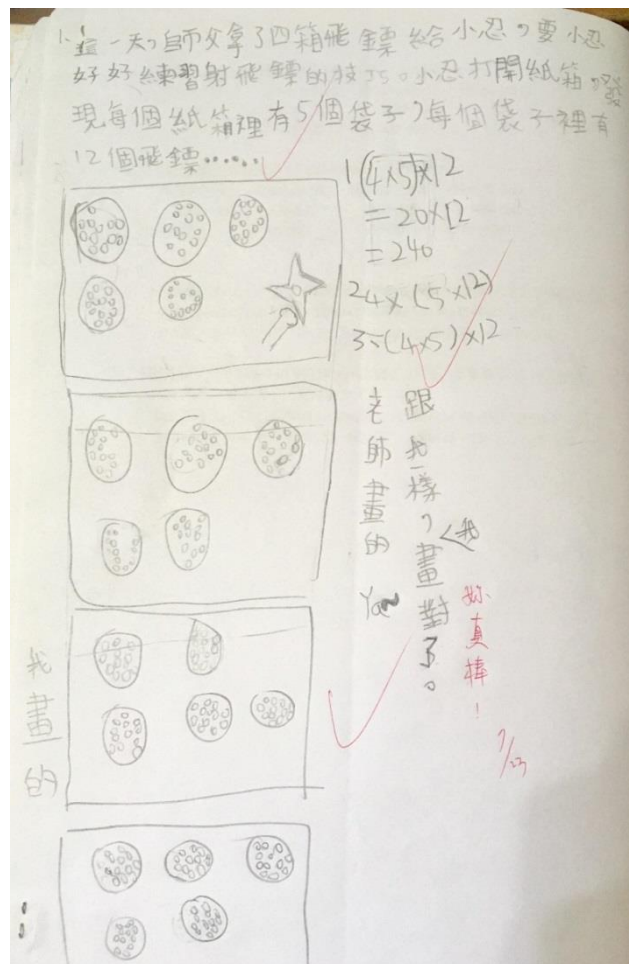 1. 這一天,師父拿了四箱飛鏢給小忍,要小忍
好好練習射飛鏢的技巧。小忍打開紙箱,發
現每個紙箱裡有5個袋子,每個袋子裡有
12個飛鏢......
1(4×5)×12
=20×12
=240
2 4×(5×12)
3 (4×5)×12
老師畫的
跟我一樣,畫對了。
我
Ya~
妳真棒!
7/23
我畫的